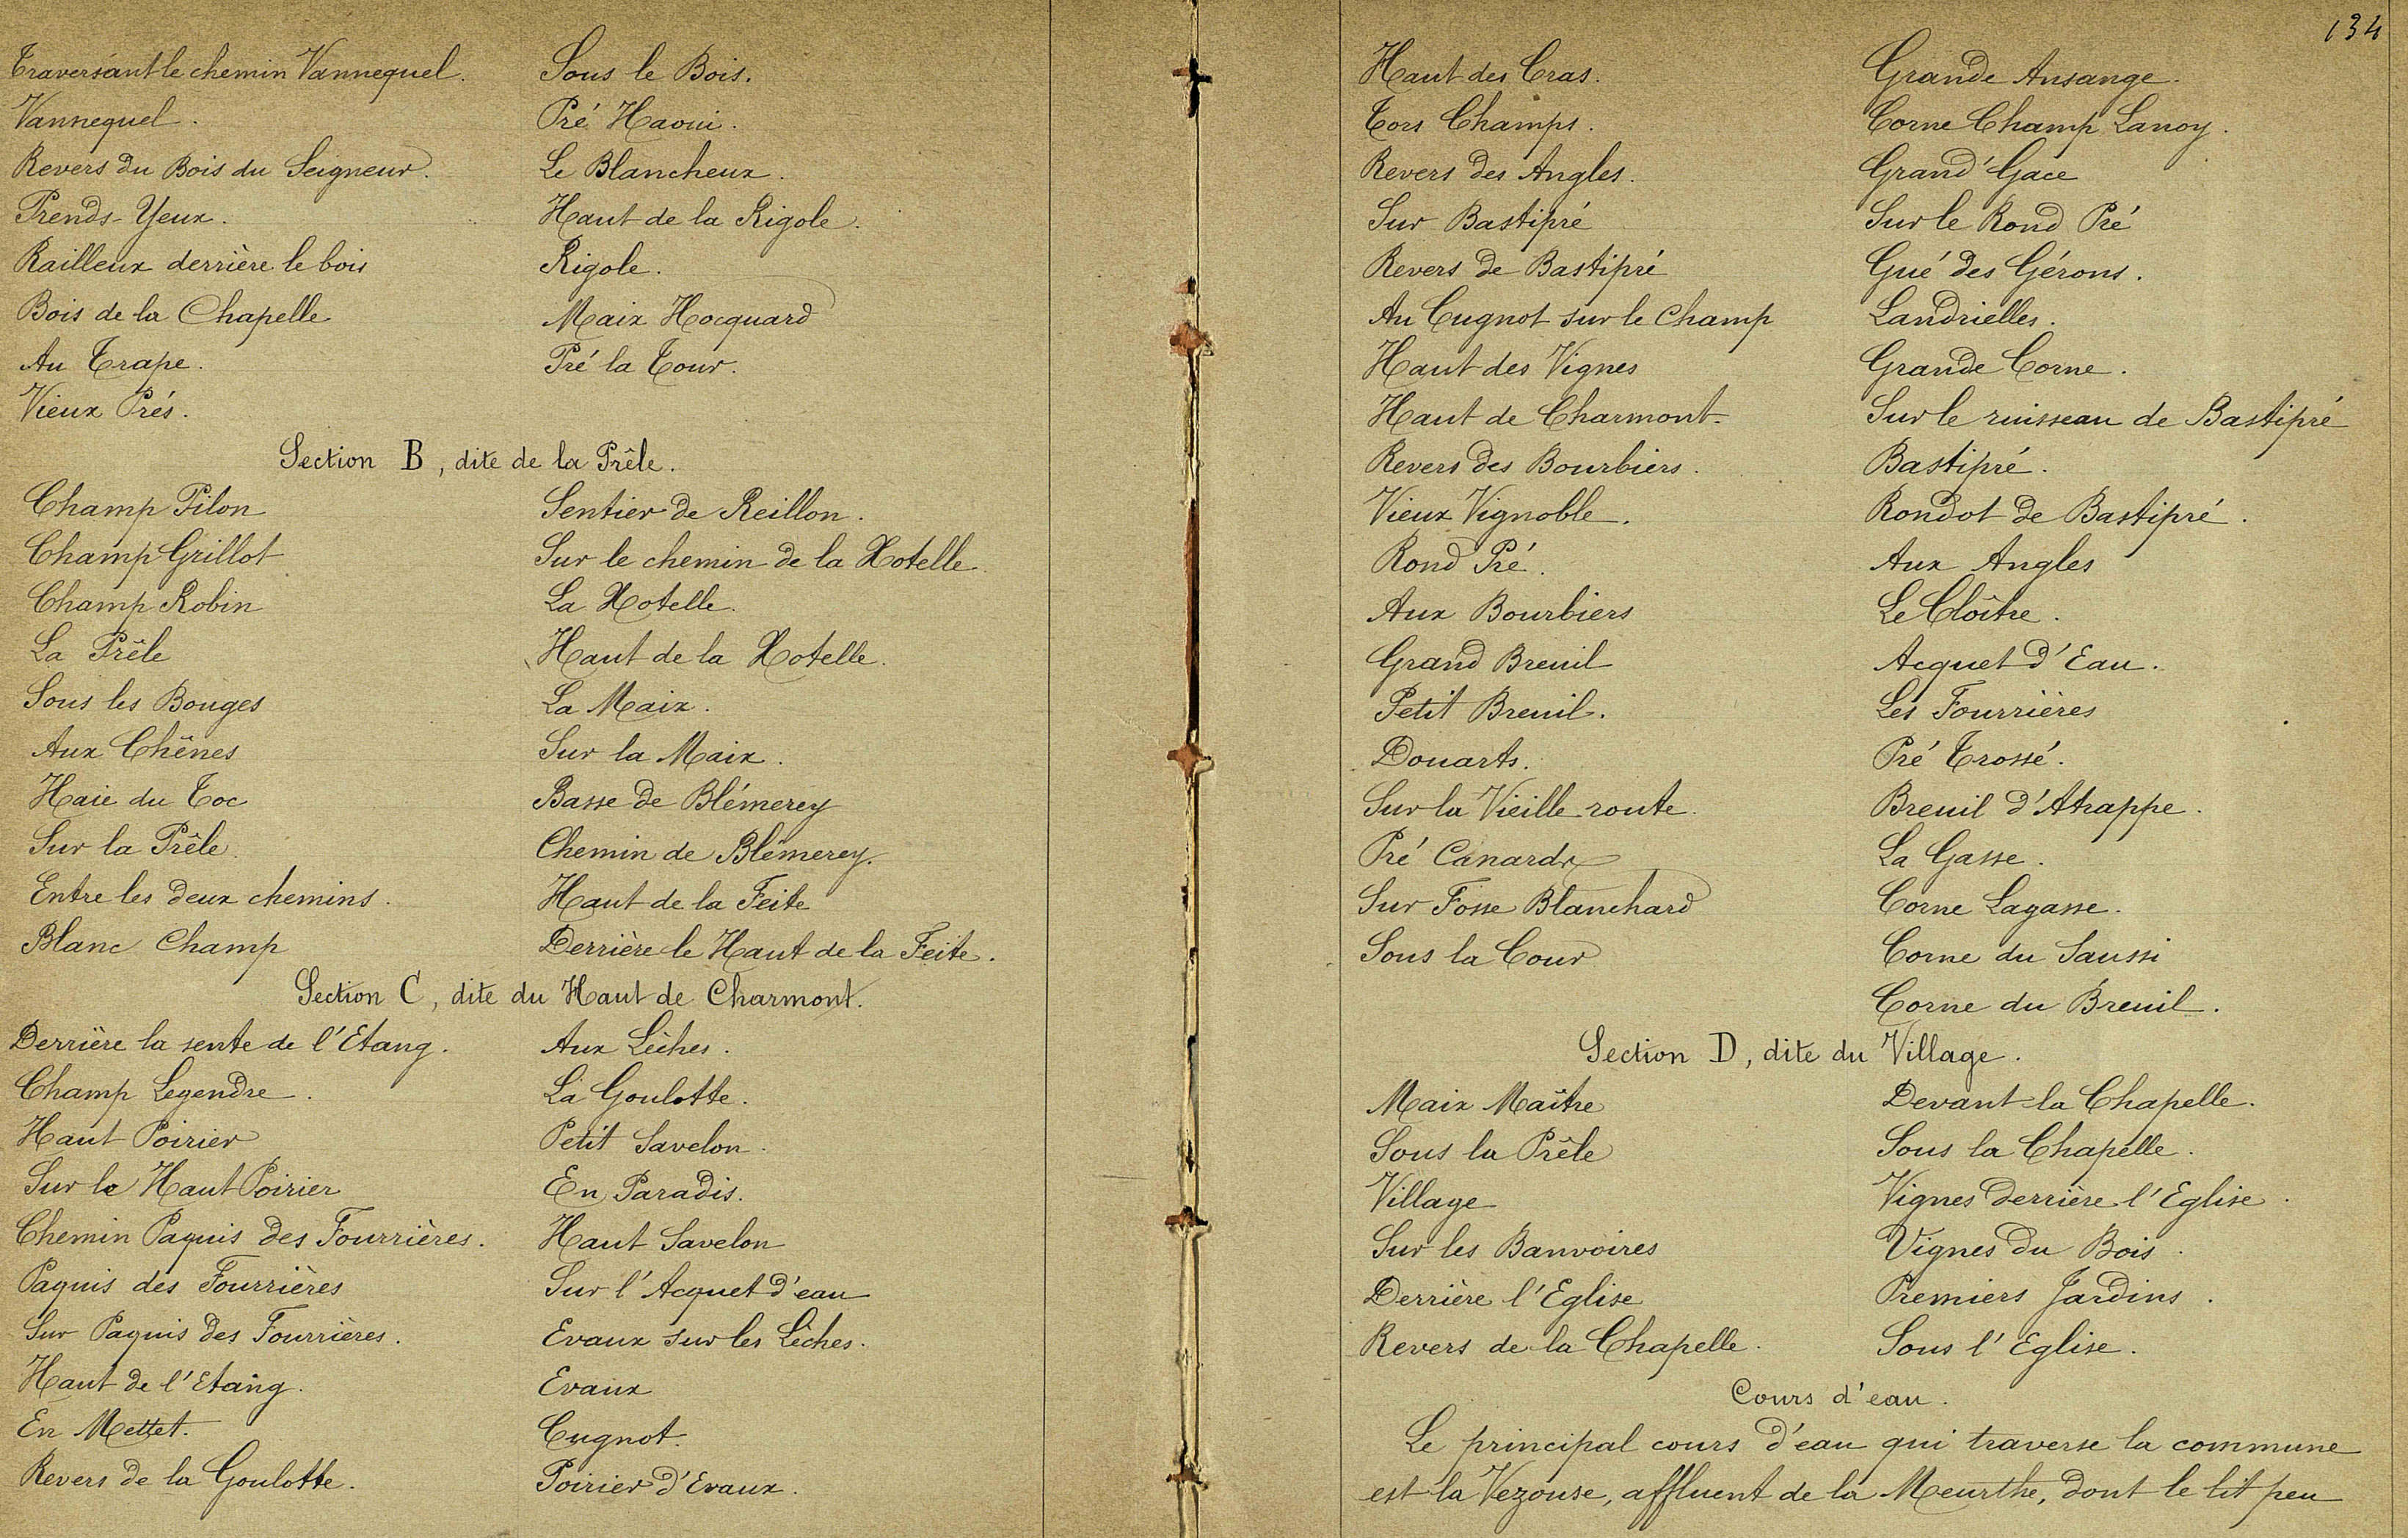 Traversant le chemin Vannequel.
Vannequel.
Revers du Bois du Seigneur.
Prends-Yeux.
Railleux derrière le bois
Bois de la Chapelle
Au Trape.
Vieux Prés.
Sous le Bois.
Pré Haoui.
Le Blancheux.
Haut de la Rigole.
Rigole.
Maix Hocquard
Pré la Tour.
Section B, dite de la Prêle.
Champ Pilon
Champ Grillot
Champ Robin
La Prêle
Sous les Bouges
Aux Chênes
Haie du Toc
Sur la Prêle.
Entre les deux chemins.
Blanc Champ
Sentier de Reillon.
Sur le chemin de la Xotelle.
La Xotelle.
Haut de la Xotelle.
La Maix.
Sur la Maix.
Basse de Blémerey
Chemin de Blémerey.
Haut de la Feite
Derrière le Haut de la Feite.
Section C, dite du Haut de Charmont.
Derrière la sente de l'Etang.
Champ Legendre.
Haut Poirier
Sur le Haut Poirier
Chemin Paquis des Fourrières.
Paquis des Fourrières
Sur Paquis des Fourrières.
Haut de l'Etang.
En Mettet.
Revers de la Goulotte.
Aux Lèches.
La Goulotte.
Petit Savelon.
En Paradis.
Haut Savelon
Sur l'Acquet d'eau
Evaux sur les Lèches.
Evaux
Cugnot.
Poirier d'Evaux.
134
Haut des Cras.
Tors Champs.
Revers des Angles.
Sur Bastipré
Revers de Bastipré
Au Cugnot sur le Champ
Haut des Vignes
Haut de Charmont.
Revers des Bourbiers.
Vieux Vignoble.
Rond Pré.
Aux Bourbiers
Grand Breuil
Petit Breuil.
Douarts.
Sur la Vieille route.
Pré Canard
Sur Fosse Blanchard
Sous la Cour
Grande Ansange.
Corne Champ Lanoy.
Grand' Gace
Sur le Rond Pré
Gué des Gérons.
Landrielles.
Grande Corne.
Sur le ruisseau de Bastipré
Bastipré.
Rondot de Bastipré.
Aux Angles
Le Cloître.
Acquet d'Eau.
Les Fourrières
Pré Trossé.
Breuil d'Atrappe.
La Gasse.
Corne Lagasse.
Corne du Saussi
Corne du Breuil.
Section D, dite du Village.
Maix Maître
Sous la Prêle
Village
Sur les Banvoires
Derrière l'Eglise
Revers de la Chapelle.
Devant la Chapelle.
Sous la Chapelle.
Vignes derrière l'Eglise.
Vignes du Bois.
Premiers Jardins.
Sous l'Eglise.
Cours d'eau.
Le principal cours d'eau qui traverse la commune
est la Vezouse, affluent de la Meurthe, dont le lit peu